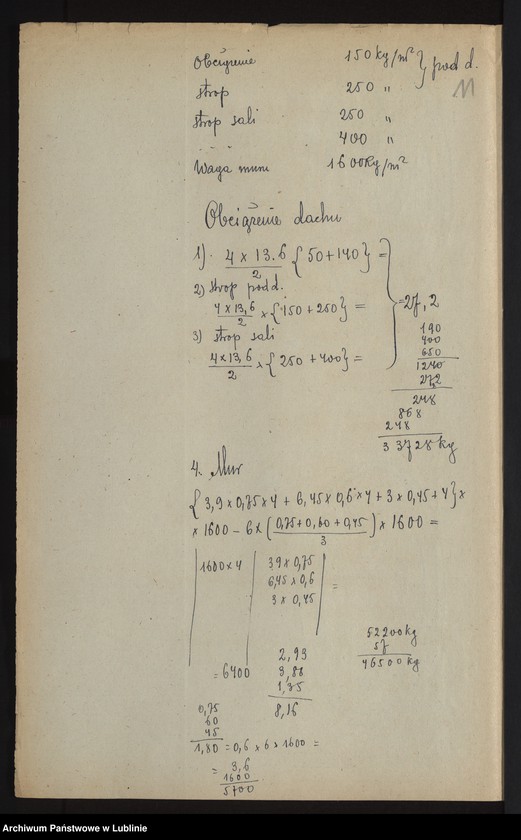 Obciążenie 150 kg/m² } pod d.
11
strop 250 "
strop sali 250 "
400 "
Waga muru 1600 kg/m²
Obciążenie dachu
1). 4 x 13.6 / 2 { 50 + 140 } =
2) strop podd.
4 x 13,6 / 2 x { 150 + 250 } = } = 27,2
3) strop sali
4 x 13,6 / 2 x { 250 + 400 } =
190
400
650
1240
27,2
248
868
248
33728 kg
4. Mur
{ 3,9 x 0,75 x 4 + 6,45 x 0,6 x 4 + 3 x 0,45 + 4 } x
x 1600 - 6 x ( 0,75 + 0,60 + 0,45 / 3 ) x 1600 =
1600 x 4 | 3.9 x 0,75
6,45 x 0,6 =
3 x 0,45
52200 kg
57
46500 kg
= 6400
2,93
3,88
1,35
8,16
0,75
60
45
1,80 = 0,6 x 6 x 1600 =
= 3,6
1600
5700
Archiwum Państwowe w Lublinie